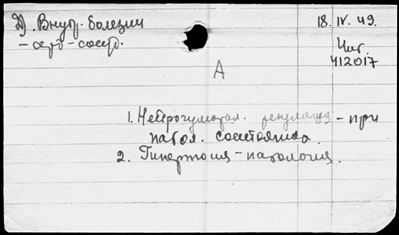 Д. Внут. болезни
18.IV.49.
– серд – сосуд.
Инв.
412017
А
1. Нейрогуморал. регуляция – при
патол. состояниях.
2. Гипертония – патология.